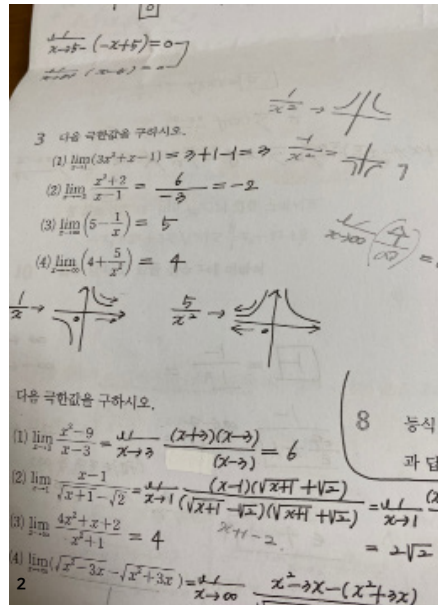 lim x→5- (-x+5)=0
1/x² →
3 다음 극한값을 구하시오.
(1) lim x→1 (3x²+x-1) = 3+1-1=3
-1/x² =
(2) lim (x²+2)/(x-1) = 6/-3 = -2
(3) lim x→∞ (5-1/x) = 5
lim x→∞ (4/∞) =
(4) lim x→-∞ (4+5/x²) = 4
1/x →
5/x² →
다음 극한값을 구하시오.
8 등식
(1) lim x→3 (x²-9)/(x-3) = lim x→3 (x+3)(x-3)/(x-3) = 6
과 답
(2) lim x→1 (x-1)/(√x+1-√2) = lim x→1 (x-1)(√x+1+√2)/(√x+1-√2)(√x+1+√2) = lim x→1
x+1-2
= 2√2
(3) lim x→∞ (4x²+x+2)/(x²+1) = 4
(4) lim x→∞ (√x²-3x-√x²+3x) = lim x→∞ x²-3x-(x²+3x)
2